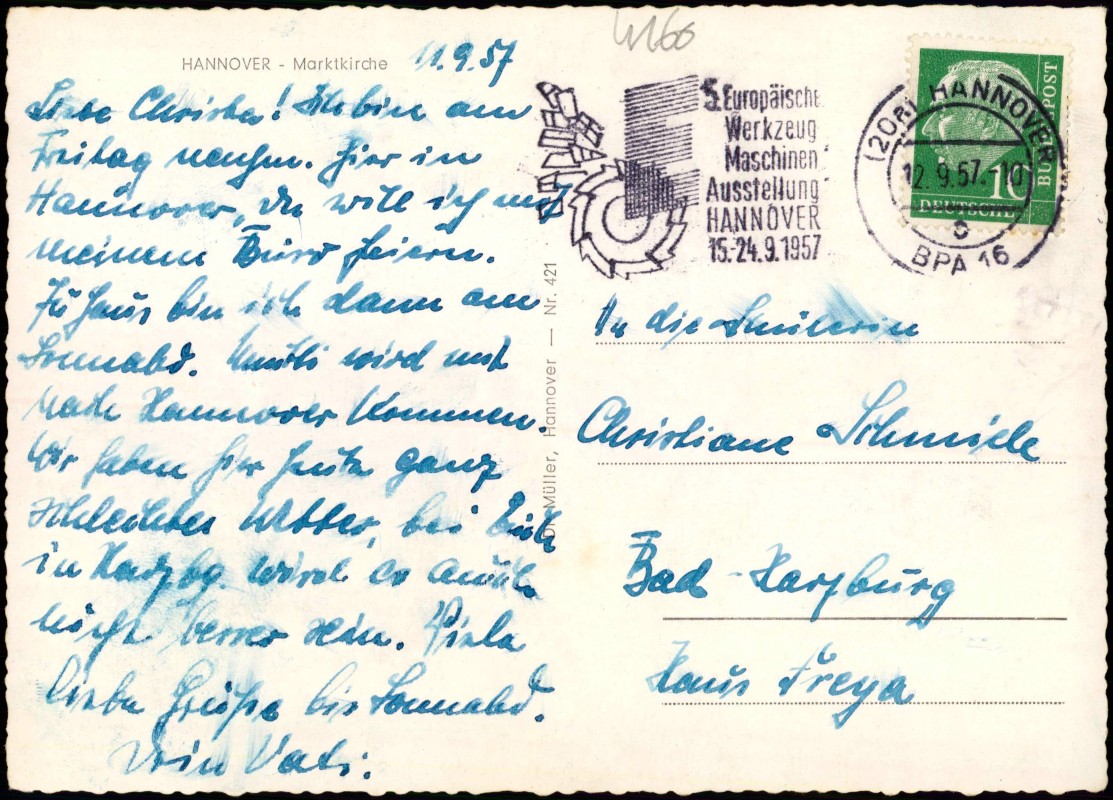 4166
HANNOVER - Marktkirche
11.9.57
Liebe Christa! Ich bin am
Freitag noch hier in
Hannover, da will ich mit
meinem Büro feiern.
Zu Haus bin ich dann am
Sonnabd. Mutti wird mit
nach Hannover kommen.
Wir haben hier heute ganz
schlechtes Wetter, bei Euch
in Harzbg wird es auch
nicht besser sein. Viele
liebe Grüße bis Sonnabd.
Dein Vati.
Dr. Müller, Hannover — Nr. 421
5. Europäische
Werkzeug
Maschinen
Ausstellung
HANNOVER
15.-24.9.1957
(20a) HANNOVER
12.9.57.-10
BPA 16
BUNDESPOST
10
DEUTSCHE
An die Schülerin
Christiane Schmiele
Bad-Harzburg
Haus Freya